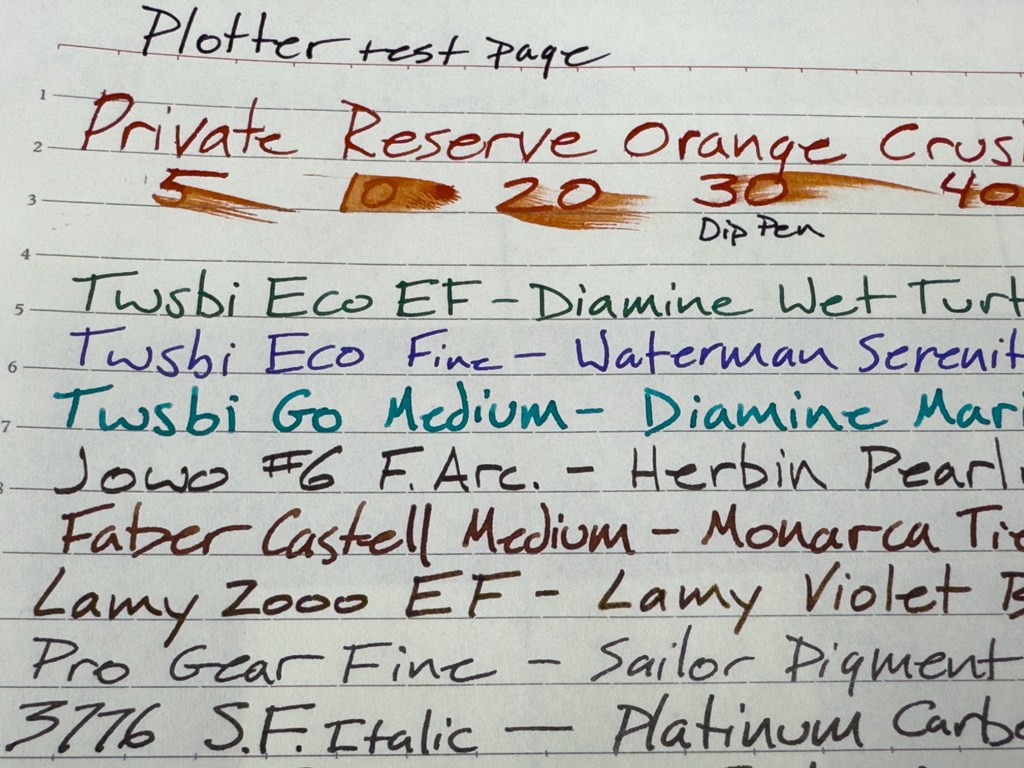 Plotter test page
1
Private Reserve Orange Crus
2
5 10 20 30 40
3
Dip Pen
4
Twsbi Eco EF - Diamine Wet Turt
5
Twsbi Eco Fine - Waterman Serenit
6
Twsbi Go Medium - Diamine Mari
7
Jowo #6 F. Arc. - Herbin Pearl
8
Faber Castell Medium - Monarca Tie
Lamy 2000 EF - Lamy Violet B
Pro Gear Fine - Sailor Pigment
3776 S.F. Italic — Platinum Carbo